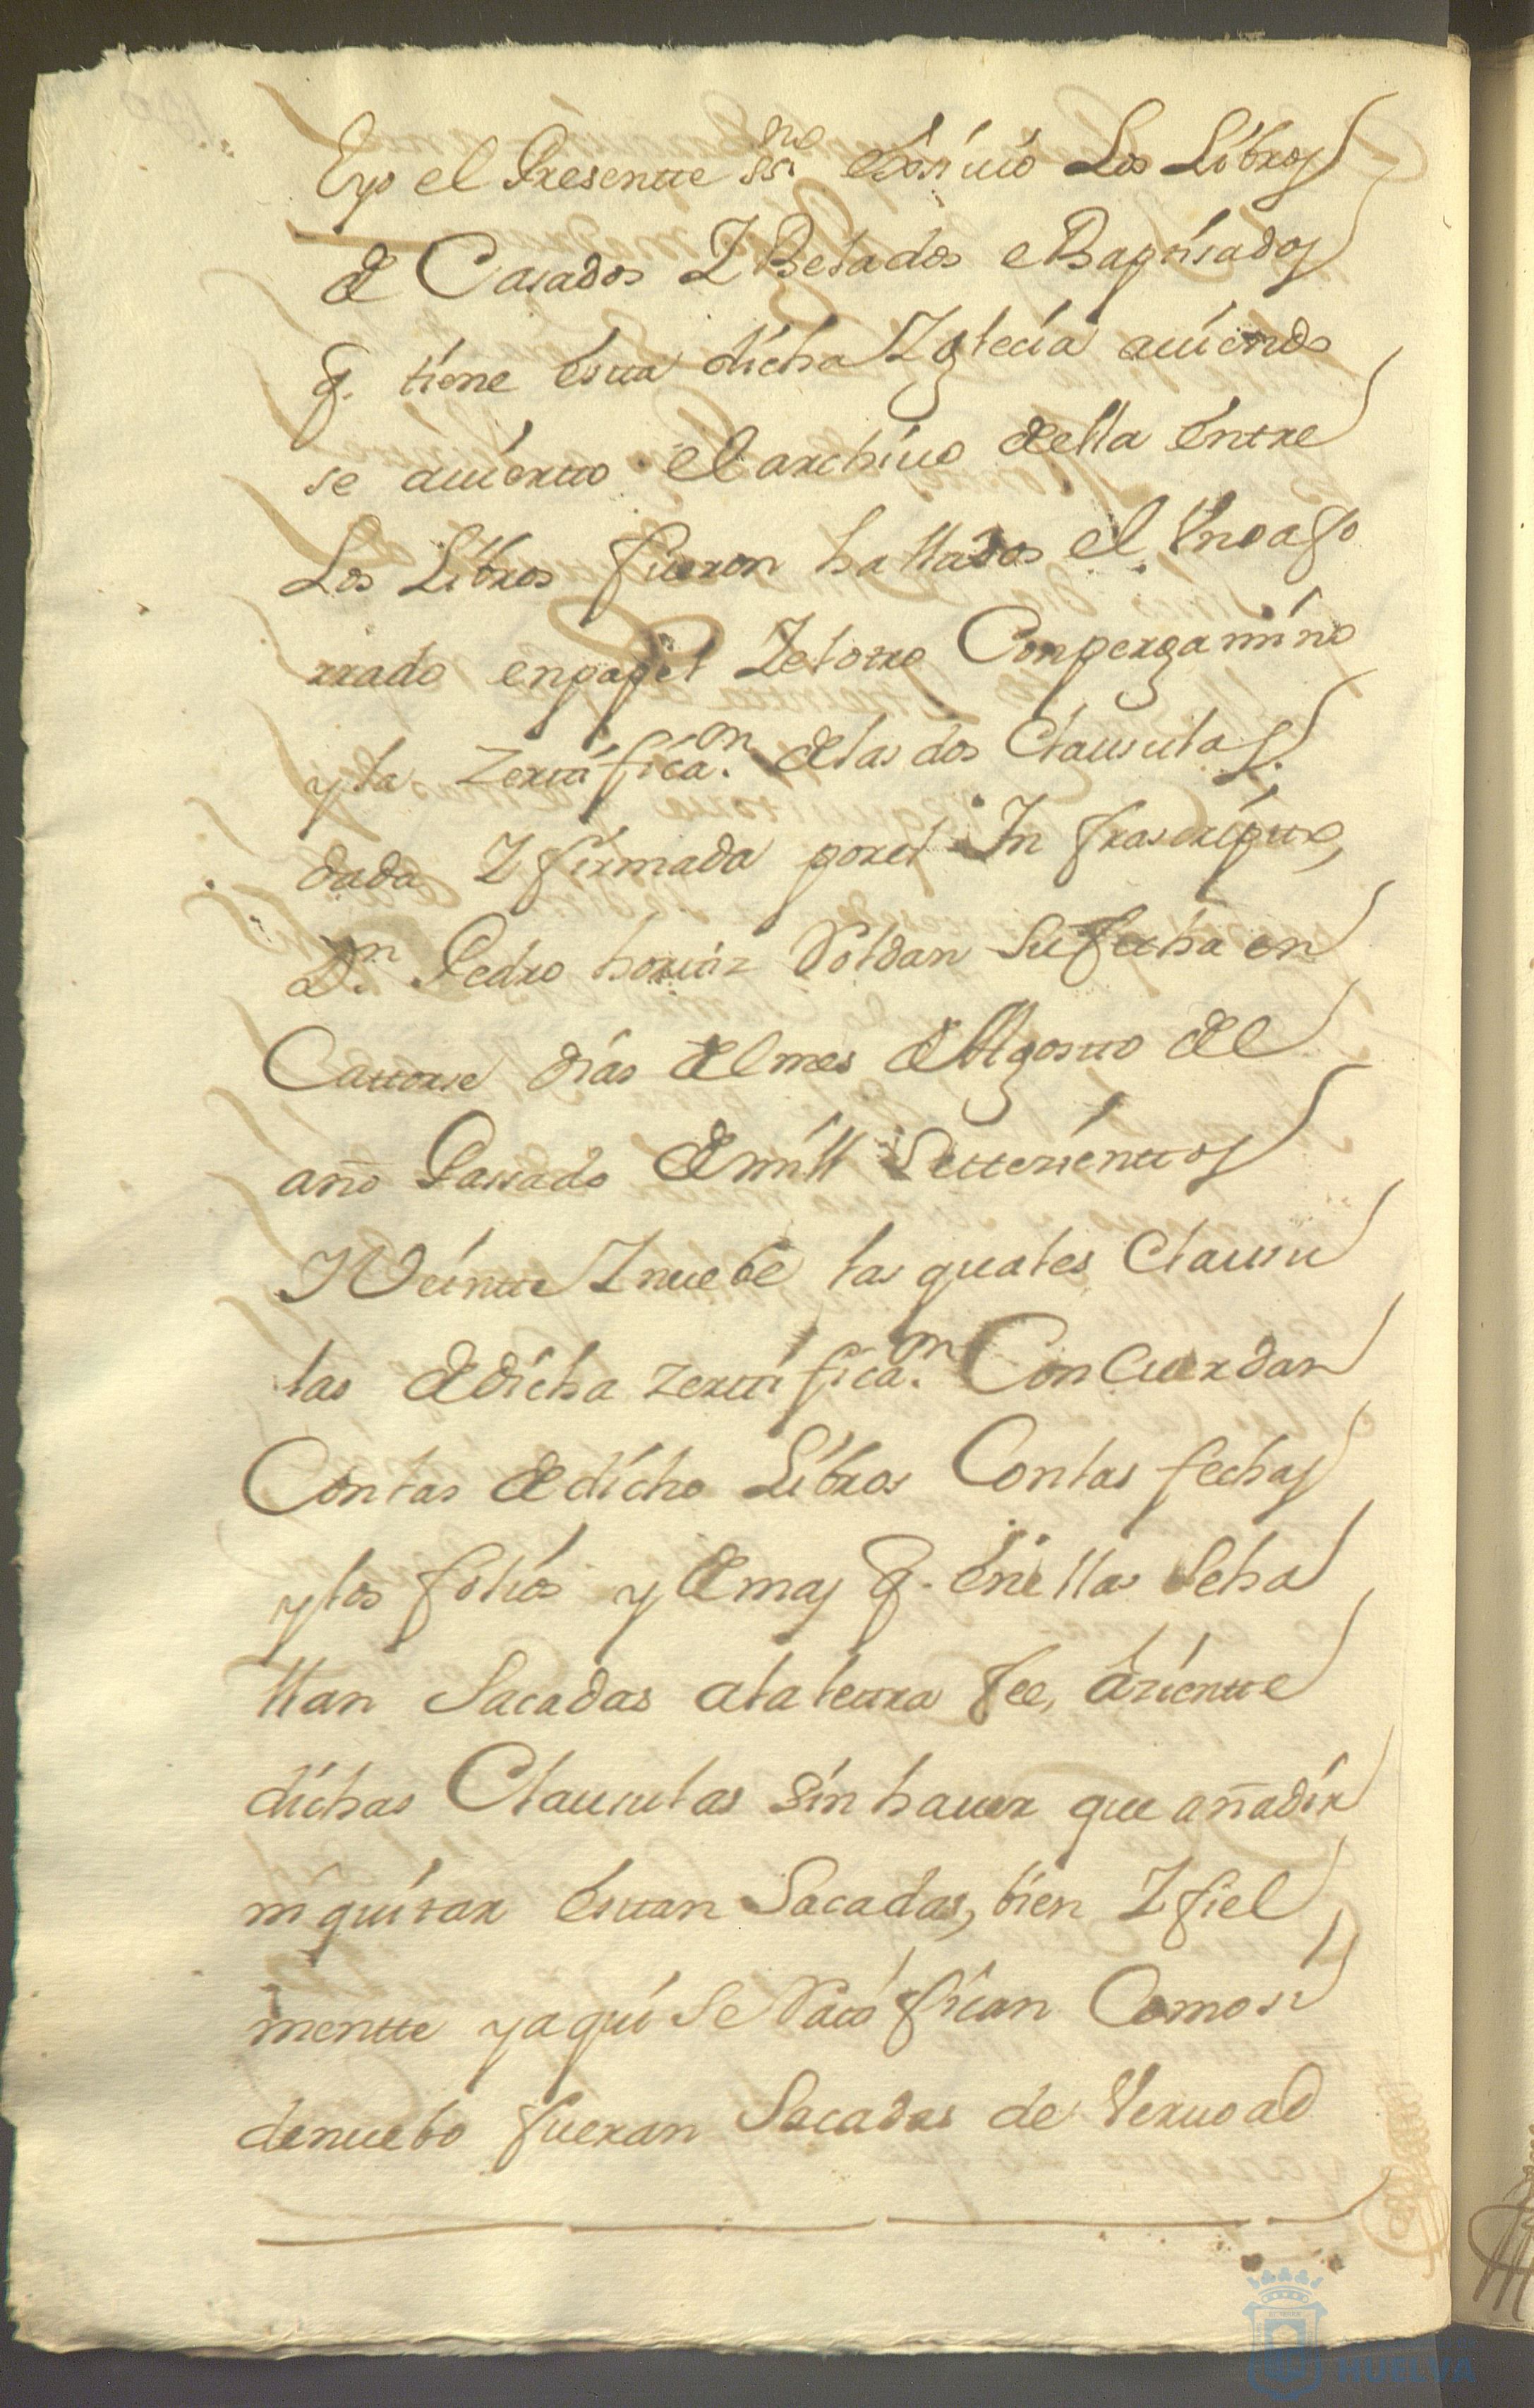 Eyo el Presentte SSno Exsivio Los Libros
de Casados I Belados e Baptisados
q. tiene estta dicha Iglecia aviendo
se avierto el archivo della entre
Los Libros fueron hallados el Uno afo
rrado en papel I el otro Con pergamino
y la Zerttificaon. de las dos Clausulas
dada I firmada por el In frascriptto,
Dn. Pedro horttiz Roldan Su fecha en
Cattorse dias del mes de Agostto del
año Passado de mill Settezienttos
I Veintte I nuebe las quales Clausu
las de dicha zerttificaon. Concuerdan
Con las de dicho Libros Con las fechas
y los folios y demas q. en ellas Se ha
llan Sacadas a la letra fee,
dichas Clausulas Sin haver que añadir
ni quitar esttan Sacadas, bien I fiel
mentte y aqui Se Ratifican Como si
de nuebo fueran Sacadas de Verdad
HUELVA